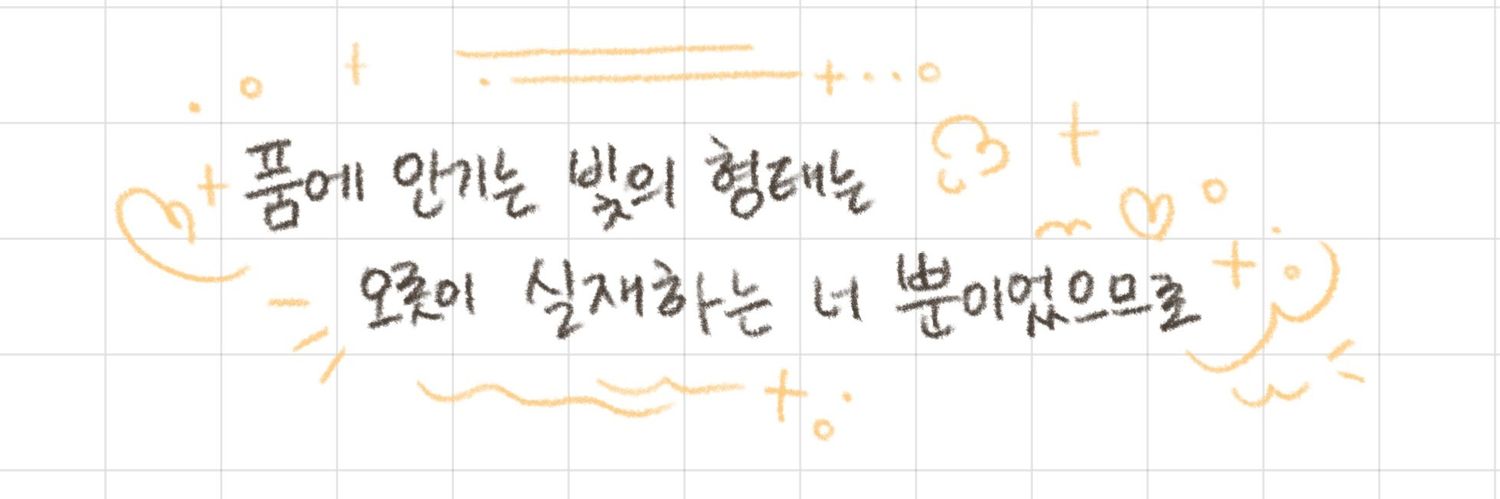 품에 안기는 빛의 형태는
오롯이 실재하는 너 뿐이었으므로